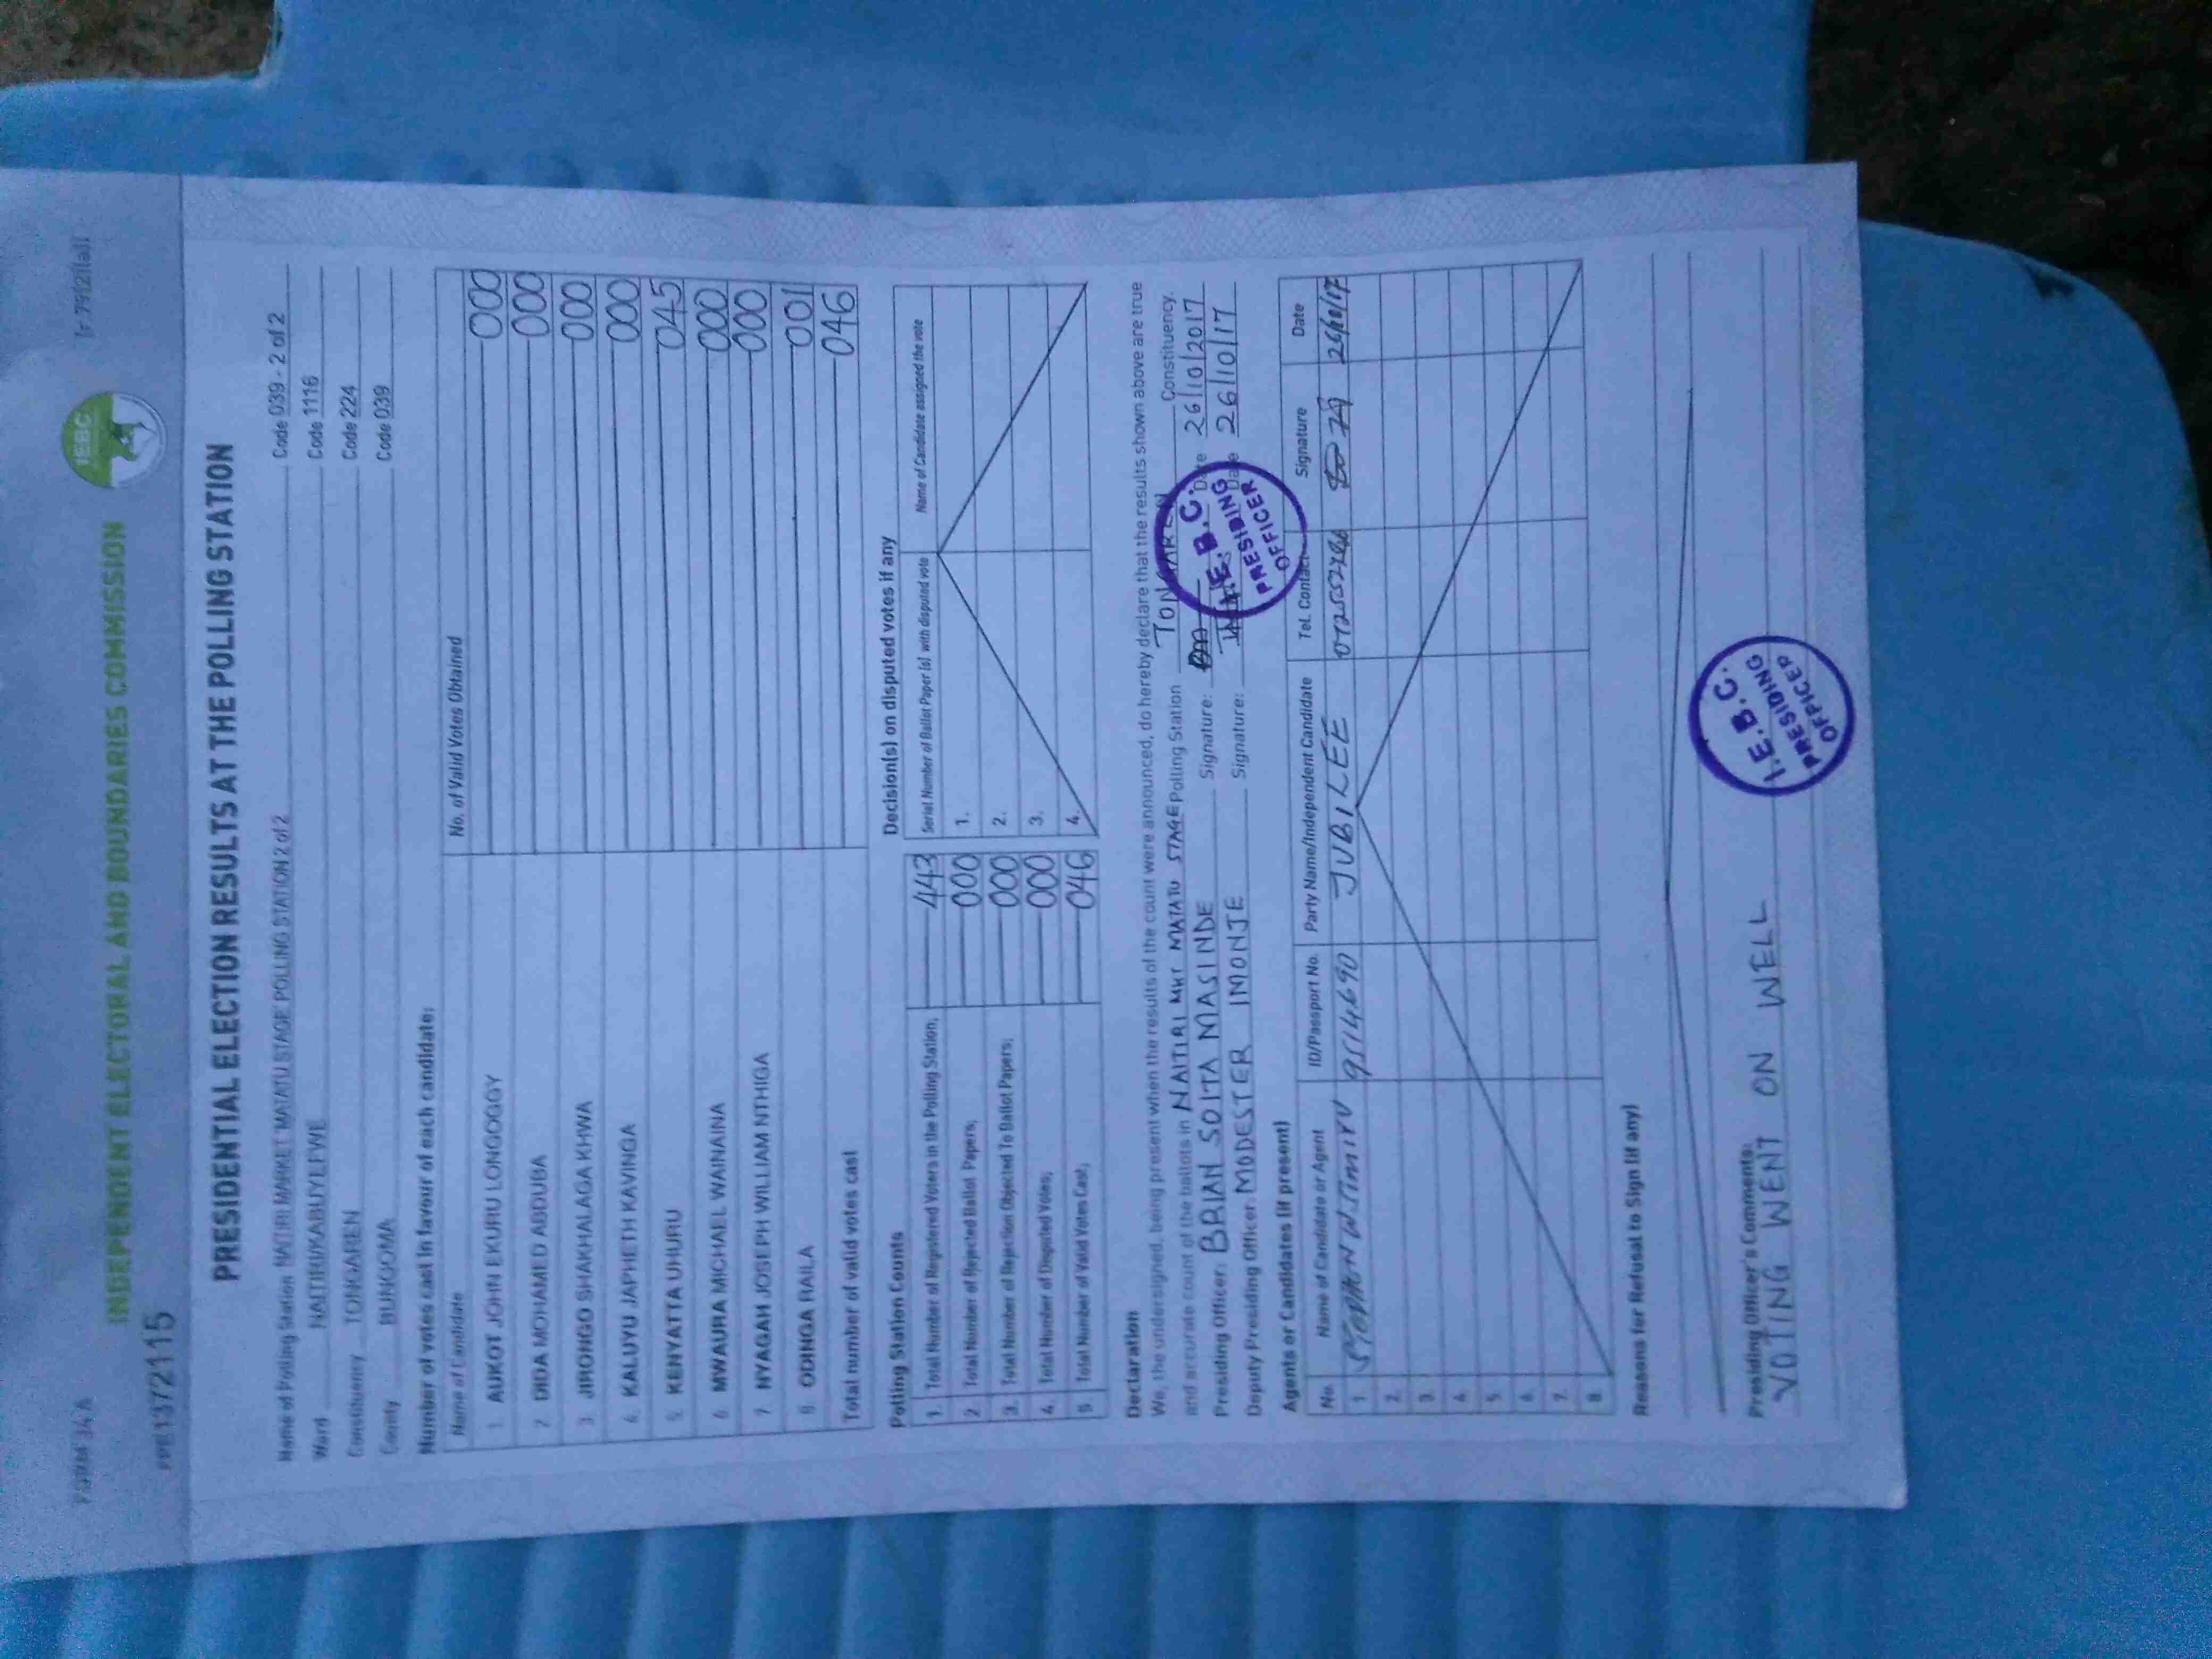 FORM 34A
(r 79(2)(a))
INDEPENDENT ELECTORAL AND BOUNDARIES COMMISSION
IEBC
PRE1372115
PRESIDENTIAL ELECTION RESULTS AT THE POLLING STATION
Name of Polling Station NAITIRI MARKET MATATU STAGE POLLING STATION 2 of 2 Code 039 - 2 of 2
Ward NAITIRI/KABUYEFWE Code 1116
Constituency TONGAREN Code 224
County BUNGOMA Code 039
Number of votes cast in favour of each candidate:
Name of Candidate No. of Valid Votes Obtained
1 AUKOT JOHN EKURU LONGOGGY 000
2 DIDA MOHAMED ABDUBA 000
3 JIRONGO SHAKHALAGA KHWA 000
4 KALUYU JAPHETH KAVINGA 000
5 KENYATTA UHURU 045
6 MWAURA MICHAEL WAINAINA 000
7 NYAGAH JOSEPH WILLIAM NTHIGA 000
8 ODINGA RAILA 001
Total number of valid votes cast 046
Polling Station Counts
1. Total Number of Registered Voters in the Polling Station; 443
2. Total Number of Rejected Ballot Papers; 000
3. Total Number of Rejection Objected To Ballot Papers; 000
4. Total Number of Disputed Votes; 000
5. Total Number of Valid Votes Cast; 046
Decision(s) on disputed votes if any
Serial Number of Ballot Paper (s) with disputed vote Name of Candidate assigned the vote
1.
2.
3.
4.
Declaration
We, the undersigned, being present when the results of the count were announced, do hereby declare that the results shown above are true
and accurate count of the ballots in NAITIRI MKT MATATU STAGE Polling Station TONGAREN Constituency.
Presiding Officer: BRIAN SOITA MASINDE Signature: Date 26/10/2017
Deputy Presiding Officer: MODESTER IMONJE Signature: Date 26/10/17
I.E.B.C. PRESIDING OFFICER
Agents or Candidates (if present)
No. Name of Candidate or Agent ID/Passport No. Party Name/Independent Candidate Tel. Contact Signature Date
1. 9514690 JUBILEE 26/10/17
2.
3.
4.
5.
6.
7.
8.
Reasons for Refusal to Sign (if any)
Presiding Officer's Comments:
VOTING WENT ON WELL
I.E.B.C. PRESIDING OFFICER